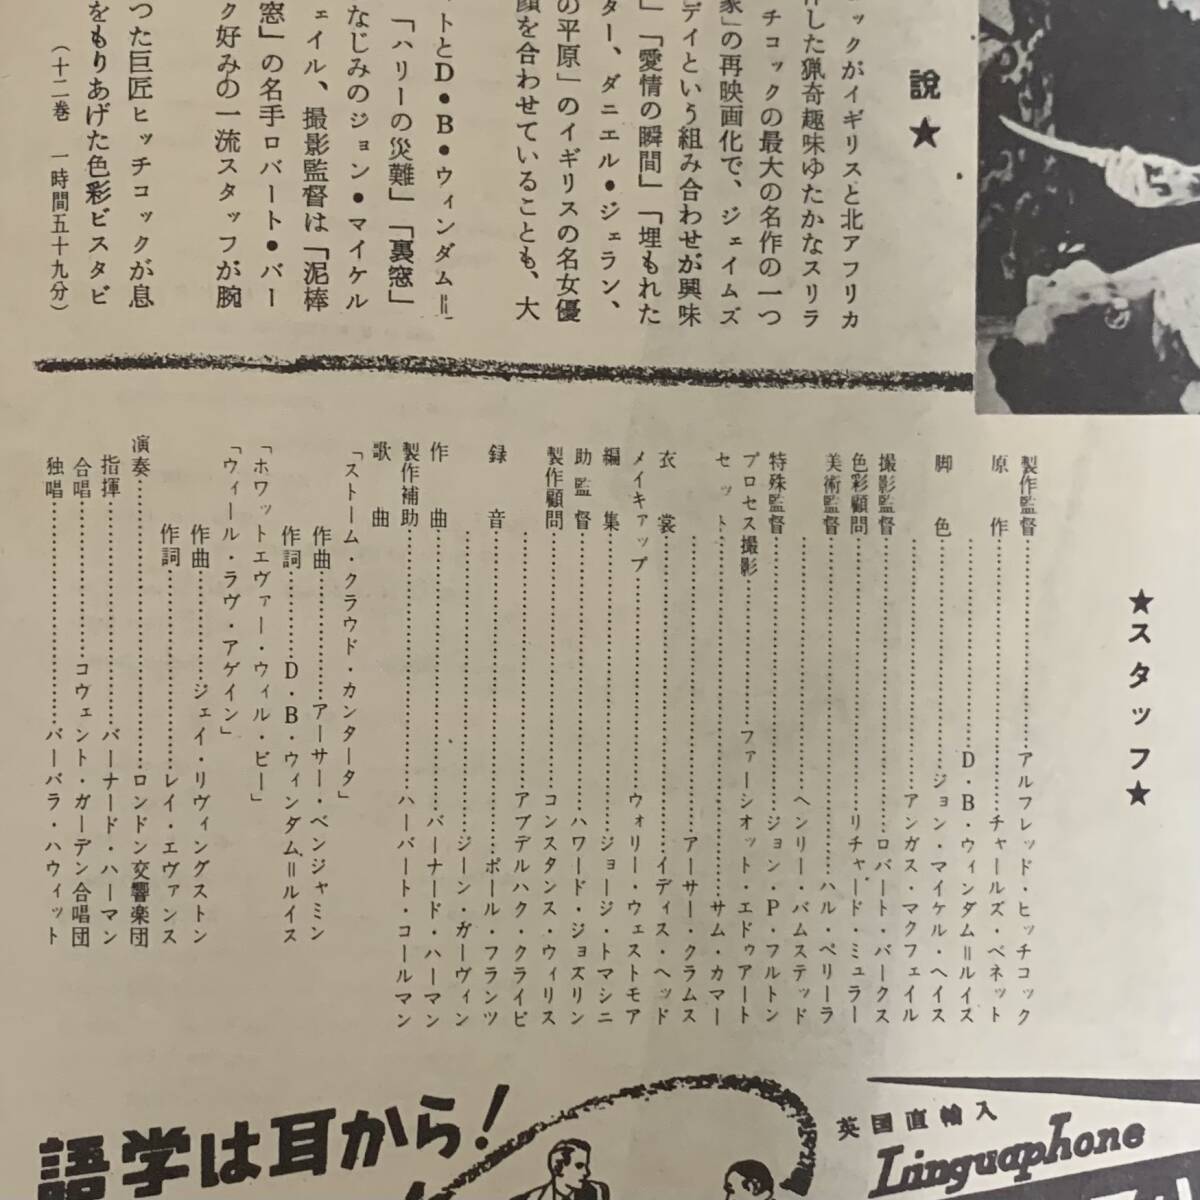 説★
ックがイギリスと北アフリカ
作した猟奇趣味ゆたかなスリラ
チコックの最大の名作の一つ
家」の再映画化で、ジェイムズ
デイという組み合わせが興味
」「愛情の瞬間」「埋もれた
ター、ダニエル・ジェラン、
の平原」のイギリスの名女優
顔を合わせていることも、大
ットとD・B・ウィンダム＝
「ハリーの災難」「裏窓」
なじみのジョン・マイケル
ェイル、撮影監督は「泥棒
窓」の名手ロバート・バー
ク好みの一流スタッフが腕
った巨匠ヒッチコックが息
をもりあげた色彩ビスタビ
（十二巻　一時間五十九分）
★スタッフ★
製作監督…………アルフレッド・ヒッチコック
原作…………チャールズ・ベネット
…………D・B・ウィンダム＝ルイズ
脚色…………ジョン・マイケル・ヘイス
…………アンガス・マクフェイル
撮影監督…………ロバート・バークス
色彩顧問…………リチャード・ミュラー
美術監督…………ハル・ペリーラ
…………ヘンリー・バムステッド
特殊監督…………ジョン・P・フルトン
プロセス撮影…………ファーシオット・エドゥアート
セット…………サム・カマー
…………アーサー・クラムス
衣裳…………イディス・ヘッド
メイキァップ…………ウォリー・ウェストモア
編集…………ジョージ・トマシニ
助監督…………ハワード・ジョズリン
製作顧問…………コンスタンス・ウィリス
…………アブデルハク・クライビ
録音…………ポール・フランツ
…………ジーン・ガーヴィン
作曲…………バーナード・ハーマン
製作補助…………ハーバート・コールマン
歌曲
「ストーム・クラウド・カンタータ」
作曲…………アーサー・ベンジャミン
作詞…………D・B・ウィンダム＝ルイス
「ホワットエヴァー・ウィル・ビー」
「ウィール・ラヴ・アゲイン」
作曲…………ジェイ・リヴィングストン
作詞…………レイ・エヴァンス
演奏…………ロンドン交響楽団
指揮…………バーナード・ハーマン
合唱…………コヴェント・ガーデン合唱団
独唱…………バーバラ・ハウィット
語学は耳から！
英国直輸入
Linguaphone